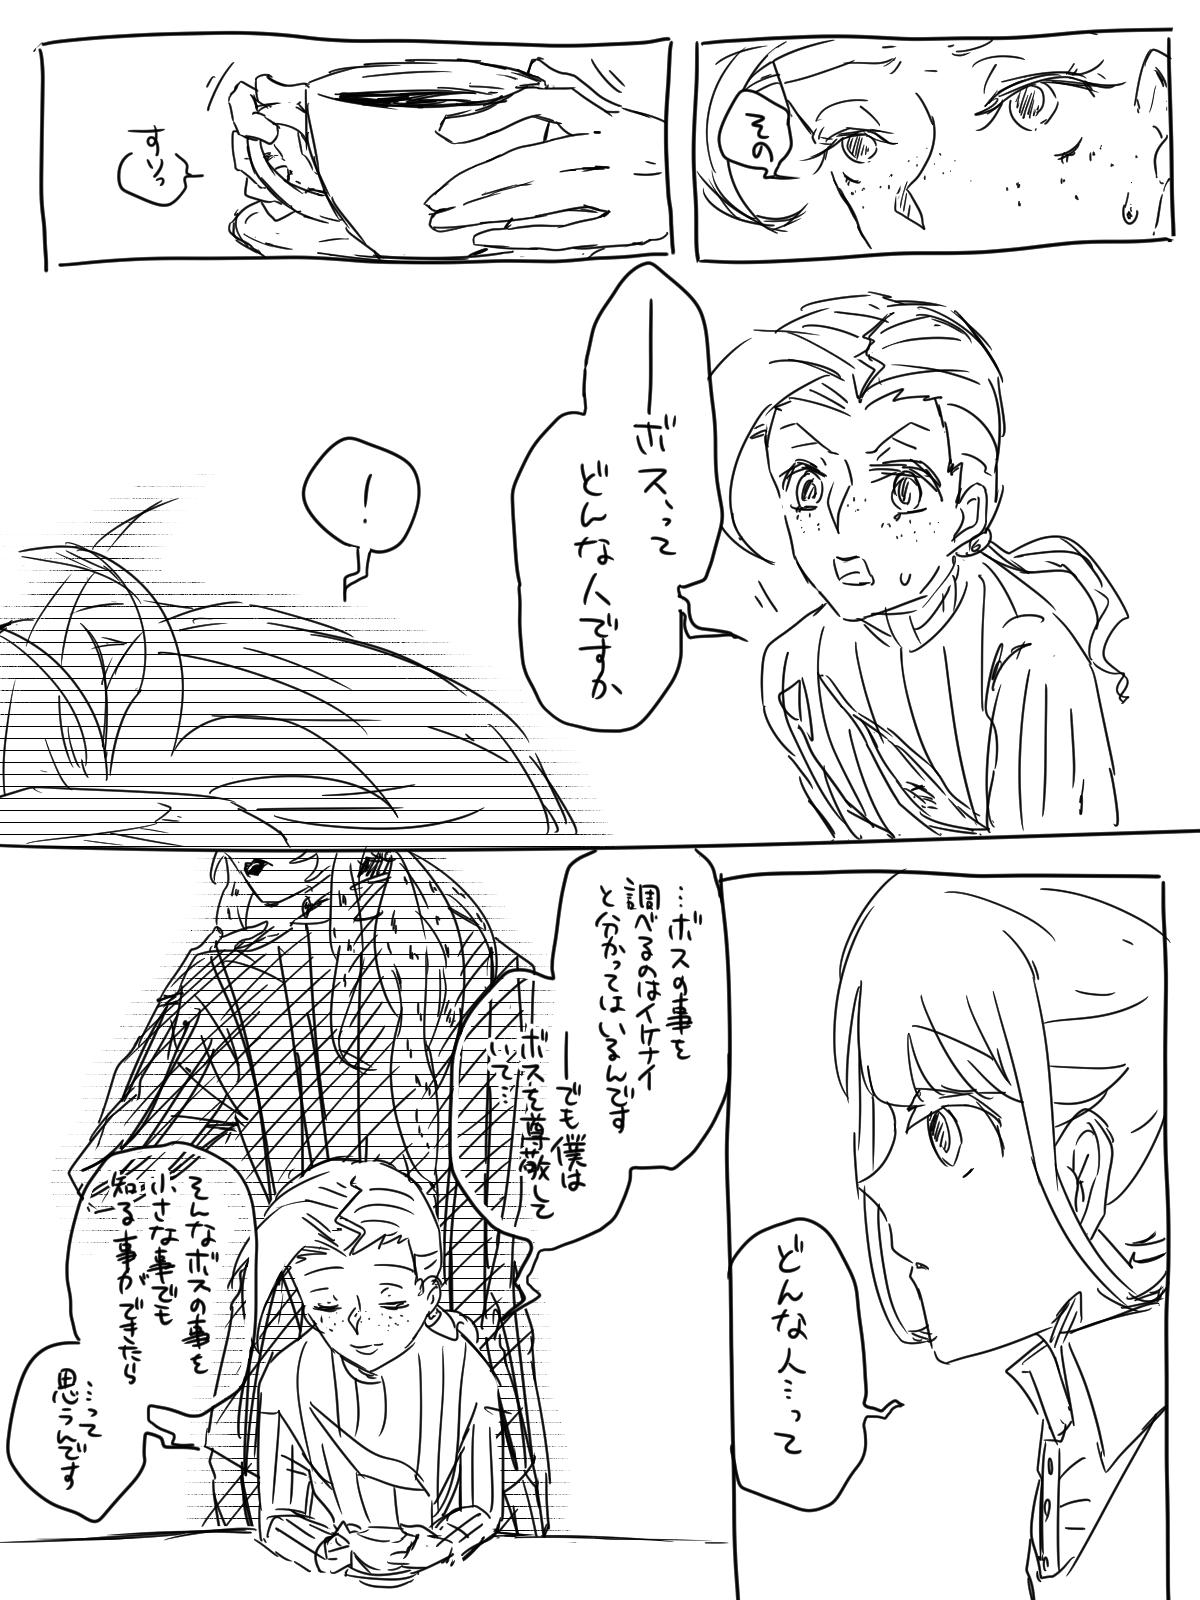 その
すりっ
──ボスって
どんな人ですか
！
どんな人…って
…ボスの事を
調べるのはイケナイ
と分かってはいるんです
──でも僕は
ボスを尊敬して
いて…
そんなボスの事を
小さな事でも
知る事ができたら
…って
思うんです